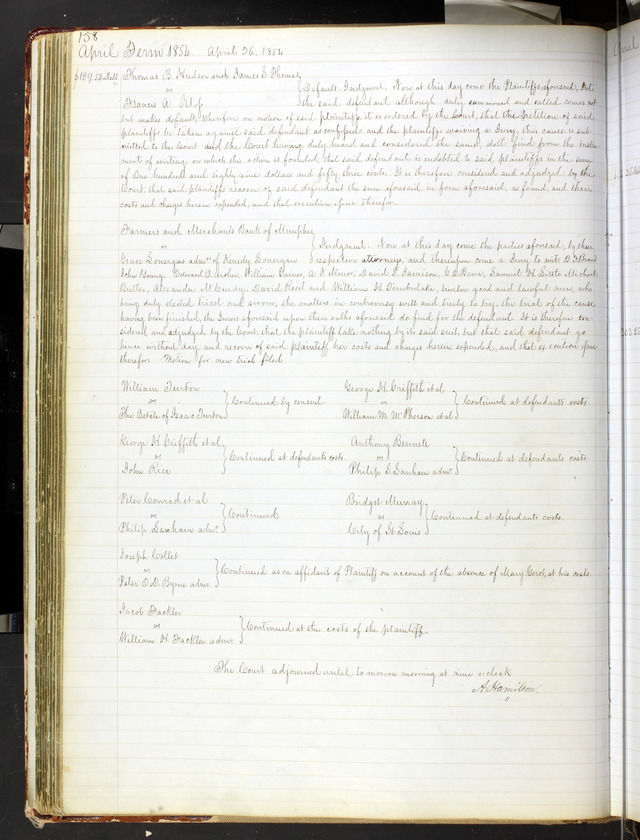 158
April Term 1854 April 26, 1854
$189.53 Debt Thomas B. Hudson and James S. Thomas
vs
Francis A.
Default Judgment. Now at this day come the Plaintiffs aforesaid, but
the said defendant although duly summoned and called comes not
but makes default; Wherefore on motion of said plaintiffs it is ordered by the Court, that the petition of said
plaintiffs be taken against said defendant as confessed and the plaintiffs waiving a Jury, this cause is sub-
mitted to the Court and the Court having duly heard and considered the same, doth find from the instru-
ment of writing on which this action is founded, that said defendant is indebted to said plaintiffs in the sum
of One hundred and eighty nine dollars and fifty three cents. It is therefore considered and adjudged by the
Court, that said plaintiffs recover of said defendant the sum aforesaid, in form aforesaid, as found, and their
costs and charges herein expended, and that execution issue therefor.
Farmers and Merchants Bank of Memphis
vs
Grace Lonergan admx. of Lonergan
Judgment. Now at this day come the parties aforesaid, by their
respective attorneys, and thereupon come a Jury to wit:
John Young, Edward William David Samuel H. Michael
Butler, Alexander David Reed and William H. twelve good and lawful men, who
being duly elected tried and sworn, the matters in controversy well and truly to try, the trial of the cause
having been finished, the Jurors aforesaid upon their oaths aforesaid do find for the defendant. It is therefore con-
sidered and adjudged by the Court that the plaintiff take nothing by its said suit, but that said defendant go
hence without day, and recover of said plaintiff her costs and charges herein expended, and that execution issue
therefor. Motion for new trial filed
William Turton
vs
The Estate of Isaac Turton
Continued by consent
George H. Griffith et al
vs
William M. McPherson et al
Continued at defendants costs.
George H. Griffith et al
vs
John Rice
Continued at defendants costs.
Anthony Bennett
vs
Philip S. Lanham admr.
Continued at defendants costs
Peter Conrad et al
vs
Philip Lanham admr.
Continued
Bridget Murray
vs
City of St Louis
Continued at defendants costs.
Joseph Collet
vs
Peter O. D. Byrne admr.
Continued as on affidavit of Plaintiff on account of the absence of Mary at his costs
Jacob Fackler
vs
William H. Fackler admr.
Continued at the costs of the plaintiff.
The Court adjourned until to morrow morning at nine o'clock
A. Hamilton.